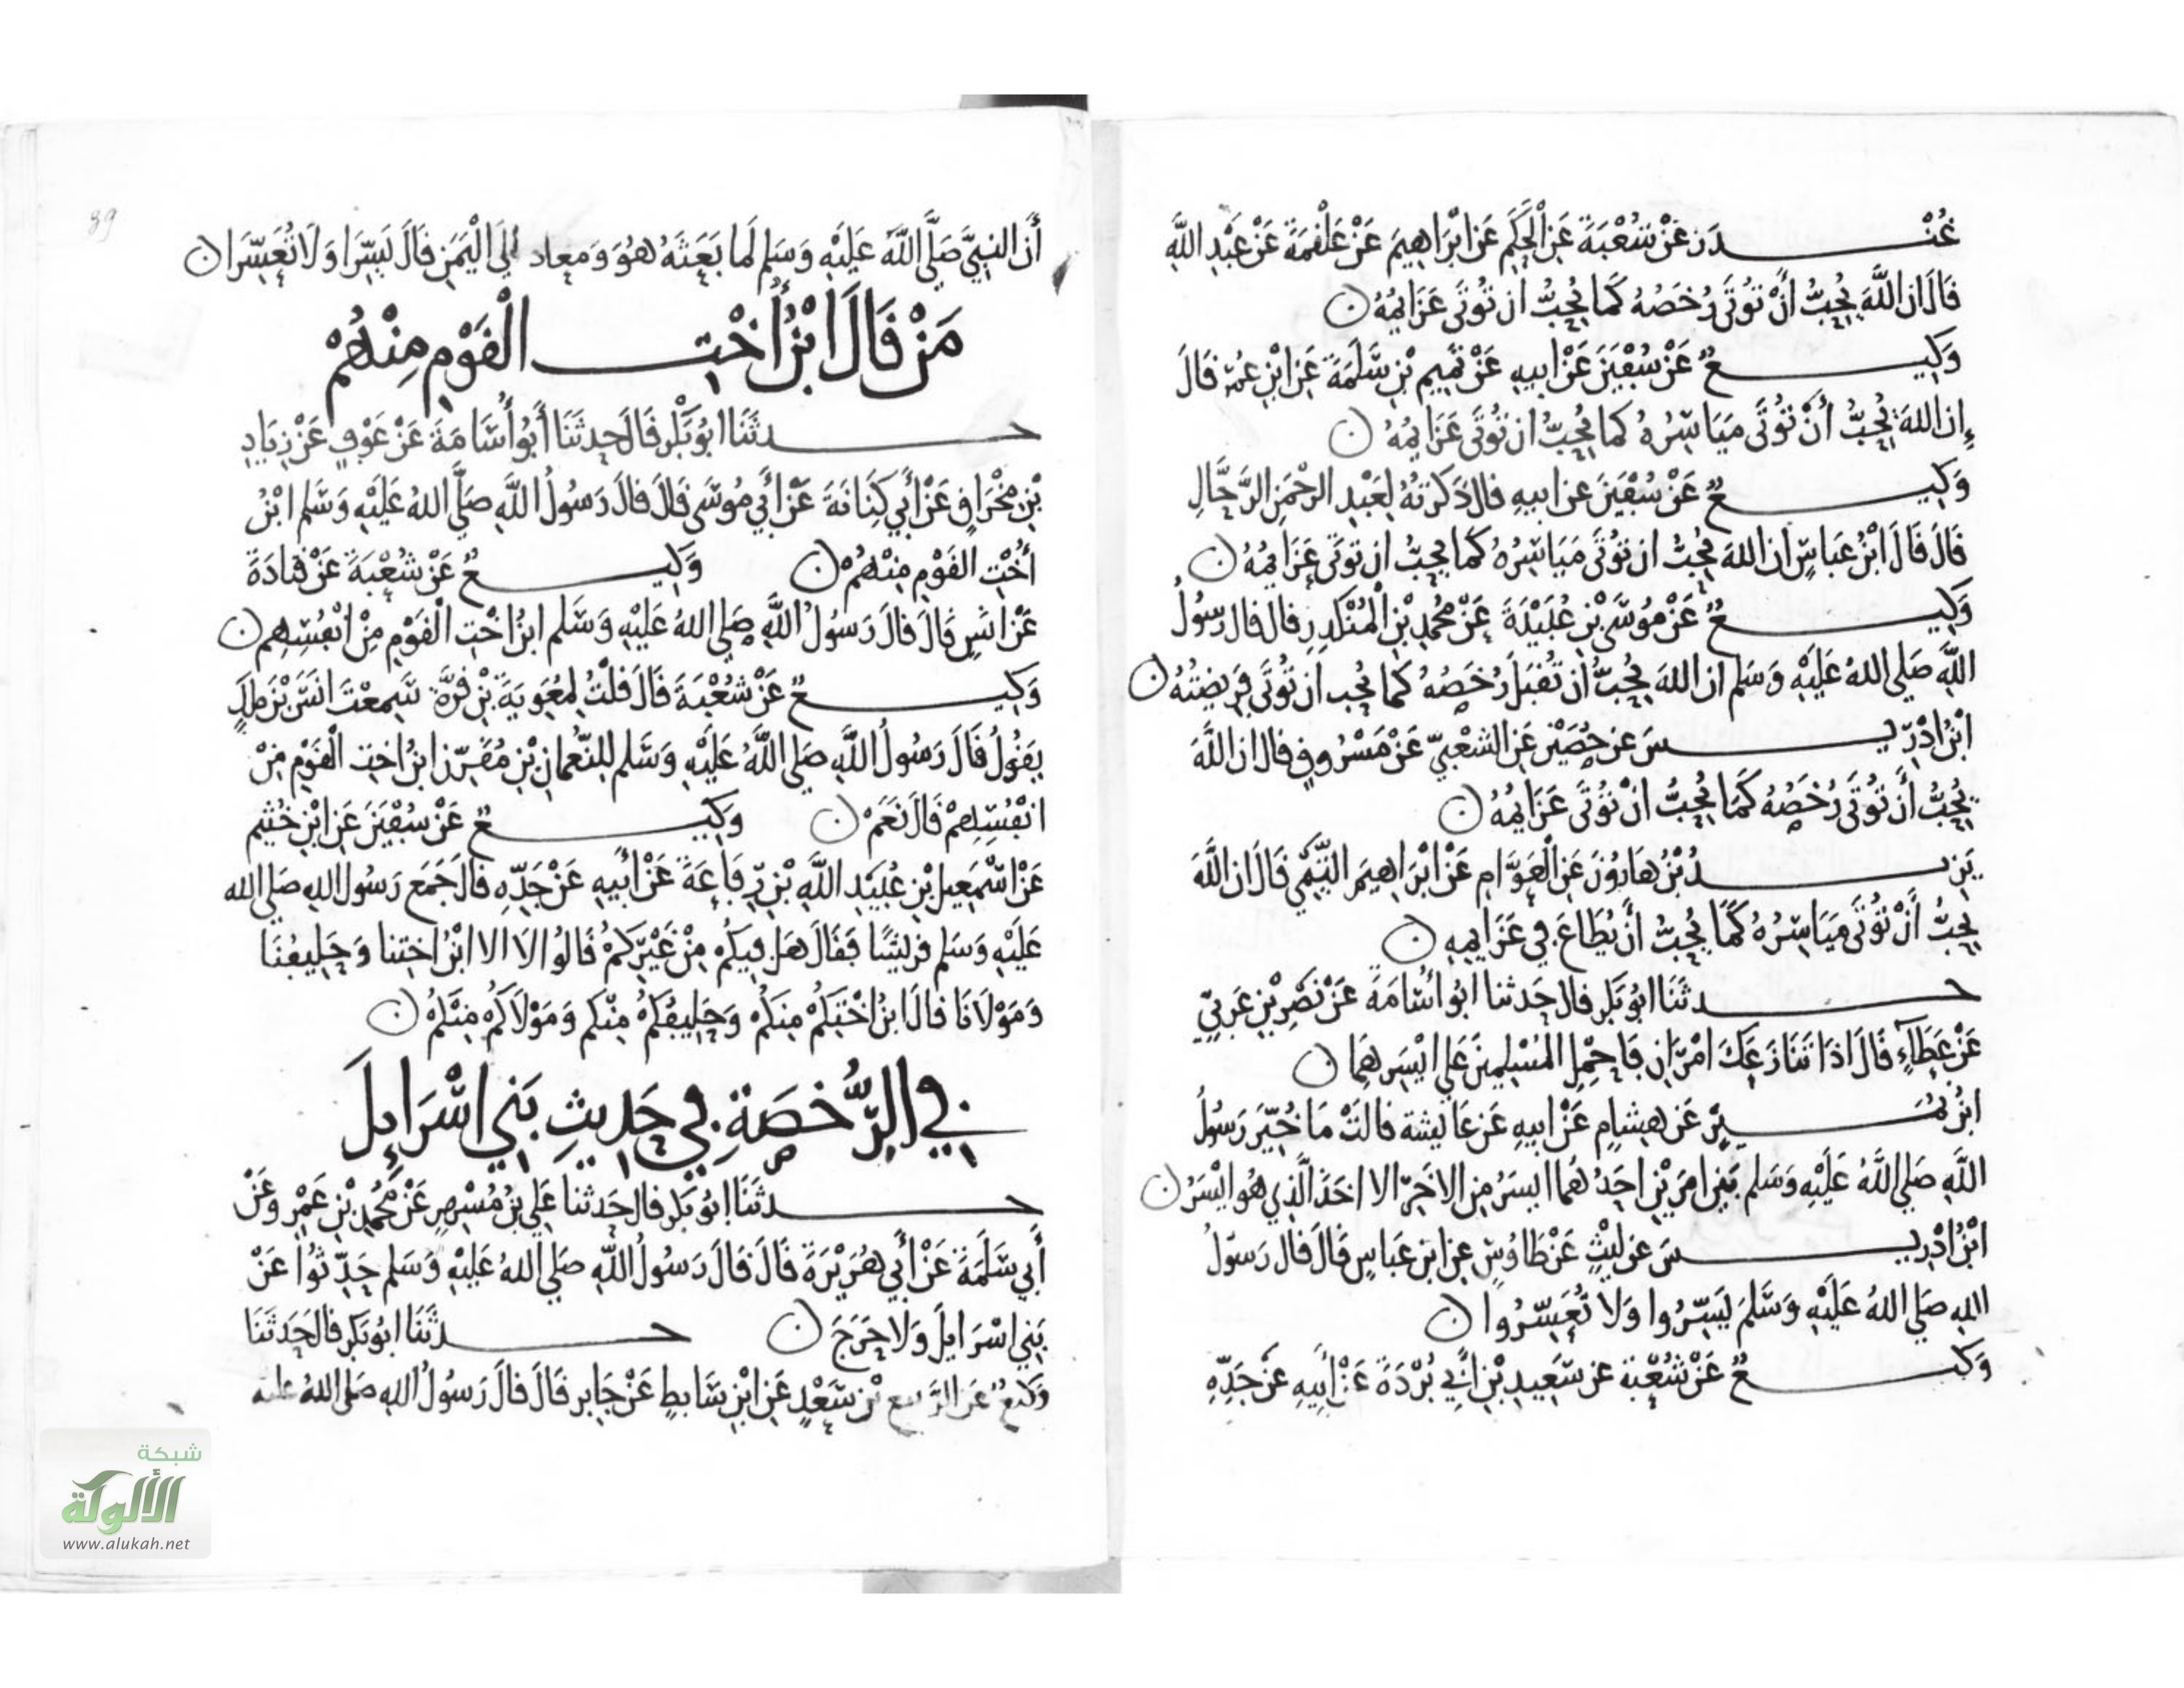 غُنْدَر عَنْ شُعْبَةَ عَنِ الْحَكَمِ عَنْ ابْرَاهِيمَ عَنْ عَلْقَمَةَ عَنْ عَبْدِ اللَّهِ
قَالَ ان اللَّهَ يُحِبُّ أَنْ تُؤْتَى رُخَصُهُ كَمَا يُحِبُّ ان تُوْتَى عَزَايِمُهُ ن
وَكِيعٌ عَنْ سُفْيَنَ عَنْ ابِيهِ عَنْ تَمِيمِ بْنِ سَلَمَةَ عَنِ ابْنِ عُمَرَ قَالَ
إِن اللهَ يُحِبُّ أَنْ تُؤْتَى مَيَاسِرُهُ كما يُحِبُّ ان تُوتَى عَزَايِمُهُ ن
وَكِيعٌ عَنْ سُفْيَنَ عن ابيهِ قال ذَكَرْتُهُ لِعَبْدِ الرحْمَنِ الرَّحَّالِ
قَالَ قَالَ ابْنُ عَبَاسٍ ان اللهَ يُحِبُّ ان تُوْتَى مَيَاسِرُهُ كَمَا يُحِبُّ ان تُوتَى عَزَايِمُهُ ن
وَكِيعٌ عَنْ مُوسَى بْنِ عُبَيْدَةَ عَنْ مُحَمدِ بْنِ الْمُنْكَدِرِ قال قال رَسُولُ
اللَّهِ صَلى اللهُ عَلَيْهِ وَسَلم ان اللهَ يُحِبُّ أن تُقْبَلَ رُخَصُهُ كما يُحِب ان تُوتَى فَرِيضَتُهُ ن
ابْنُ ادْرِيسَ عن حُصَيْنٍ عَنِ الشعْبِيِّ عَنْ مَسْرُوقٍ قال ان اللَّهَ
يُحِبُّ أَن تُوْتَى رُخَصُهُ كَمَا يُحِبُّ انْ تُوْتَى عَزَايِمُهُ ن
يَزِيدُ بْنُ هَارُونَ عَنِ الْعَوَّامِ عَنْ ابْرَاهِيمَ التَّيْمِيِّ قَالَ ان اللَّهَ
يُحِبُّ أَنْ تُوْتَى مَيَاسِرُهُ كَمَا يُحِبُّ أَنْ يُطَاعَ فِي عَزَايِمِهِ ن
حدثَنَا ابُو بَكر قال حَدثنا ابُو أُسَامَةَ عَنْ نَصْرِ بْنِ عَرَبِيٍّ
عَنْ عَطَاءٍ قَالَ اذَا تَنَازَعَكَ امْرَانِ فَاحْمِلِ الْمُسْلِمِينَ عَلَى ايْسَرِهِمَا ن
ابْنُ نُمَيْرٍ عَن هِشَامٍ عَنْ ابيهِ عَن عَايشة قالَتْ مَا خُيِّرَ رَسُولُ
اللَّهِ صَلى اللَّهُ عَلَيْهِ وَسَلم بَيْن امرَيْنِ احَدُهُما ايسَرُ مِن الاخَرِ الا اخَذَ الَّذِي هُوَ ايْسَرُ ن
ابْنُ ادْرِيسَ عن ليْثٍ عَنْ طَاوُسٍ عن ابن عَبَاسٍ قَالَ قال رَسُولُ
اللهِ صَلى اللهُ عَلَيْهِ وَسَلمَ يَسِّرُوا وَلا تُعَسِّرُوا ن
وَكيعٌ عَنْ شُعْبَةَ عن سَعِيدِ بْنِ أَبِي بُرْدَةَ عَنْ أَبِيهِ عَنْ جَدِّهِ
أَن النبِيَّ صَلَّى اللَّهُ عَلَيْهِ وَسَلم لَما بَعَثَهُ هُوَ وَمُعاد إلَى الْيَمَنِ قَالَ يَسِّرَا وَلَا تُعَسِّرَا ن
مَنْ قَالَ ابْنُ أُخْتِ الْقَوْمِ مِنْهُمْ
حدثَنَا ابُو بَكْر قَالَ حدثَنَا أَبُو أُسَامَةَ عَنْ عَوْفٍ عَنْ زِيَادِ
بْنِ مِخْرَاقٍ عَنْ أَبِي كِنَانَةَ عَنْ أَبِي مُوسَى قَالَ قالَ رَسُولُ اللَّهِ صَلَّى اللهُ عَلَيْهِ وَسَلم ابْنُ
أخْتِ القَوْمِ مِنْهُمْ ن وَكِيعٌ عَنْ شُعْبَةَ عَنْ قتَادَةَ
عَنْ انَسٍ قَالَ قالَ رَسُولُ اللَّهِ صَلى اللهُ عَلَيْهِ وَسَلم ابنُ اخْتِ الْقَوْمِ مِنْ انْفُسِهِم ن
وَكِيعٌ عَنْ شُعْبَةَ قَالَ قلْتُ لِمُعَوِيَةَ بْنِ قُرَّةَ سَمِعْتَ انَسَ بْنَ مَلِكٍ
يقَوُلُ قَالَ رَسُولُ اللَّهِ صَلى اللَّهُ عَلَيْهِ وَسَلم لِلنُّعْمانِ بْنِ مُقَرِّنٍ ابنُ اخْتِ الْقَوْمِ مِنْ
انْفُسِهِمْ قَالَ نَعَمْ ن وَكِيعٌ عَنْ سُفْيَنَ عَنِ ابْنِ خُثَيْم
عَنْ اسْمَعِيلَ بْنِ عُبَيْدِ اللَّهِ بْنِ رِفَاعَةَ عَنْ أَبِيهِ عَنْ جَدِّهِ قَالَ جَمَعَ رَسُول اللهِ صَلى الله
عَلَيْهِ وَسَلم قريشًا فَقَالَ هَل فِيكُم مِنْ غَيْرِكُمْ قَالُوا لَا الا ابْنُ اخْتِنا وَحَلِيفُنَا
وَمَوْلَانَا قَالَ ابْنُ اخْتِكُمْ مِنكُمْ وَحَلِيفُكُمْ مِنْكم وَمَوْلَاكُم مِنكُم ن
فِي الرُّخْصَةِ فِي حَدِيثِ بَنِي اسْرَايلَ
حدثَنَا ابُو بَكر قال حَدثنا عَلِي بْنُ مُسْهِرٍ عَنْ مُحَمدِ بْنِ عَمْرٍو عَنْ
أَبِي سَلَمَةَ عَنْ أَبِي هُرَيْرَةَ قَالَ قَالَ رَسُولُ اللَّهِ صَلى اللهُ عَلَيْهِ وَسَلم حَدِّثُوا عَنْ
بَنِي اسْرَايلَ وَلا حَرَجَ ن حدثَنَا ابُو بَكر قال حَدثَنَا
وَكيعٌ عَن الرَّبيع بْنِ سَعْدٍ عَنِ ابْنِ سَابِطٍ عَنْ جَابِرٍ قَالَ قالَ رَسُولُ اللهِ صَلى اللهُ عليه
39
شبكة
الألوكة
www.alukah.net